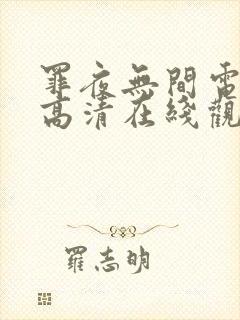 罪夜無間電
高清在綫觀
羅志明